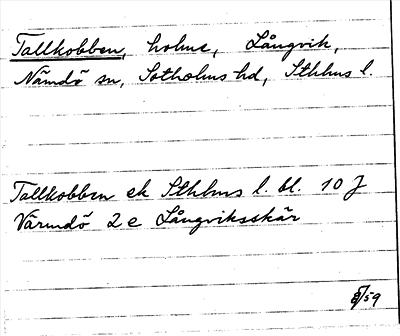 Tallkobben, holme, Långvik,
Nämdö sn, Sotholms hd, Sthlms l.
Tallkobben ek Sthlms l. bl. 10 J
Värmdö 2 e Långviksskär
8/59